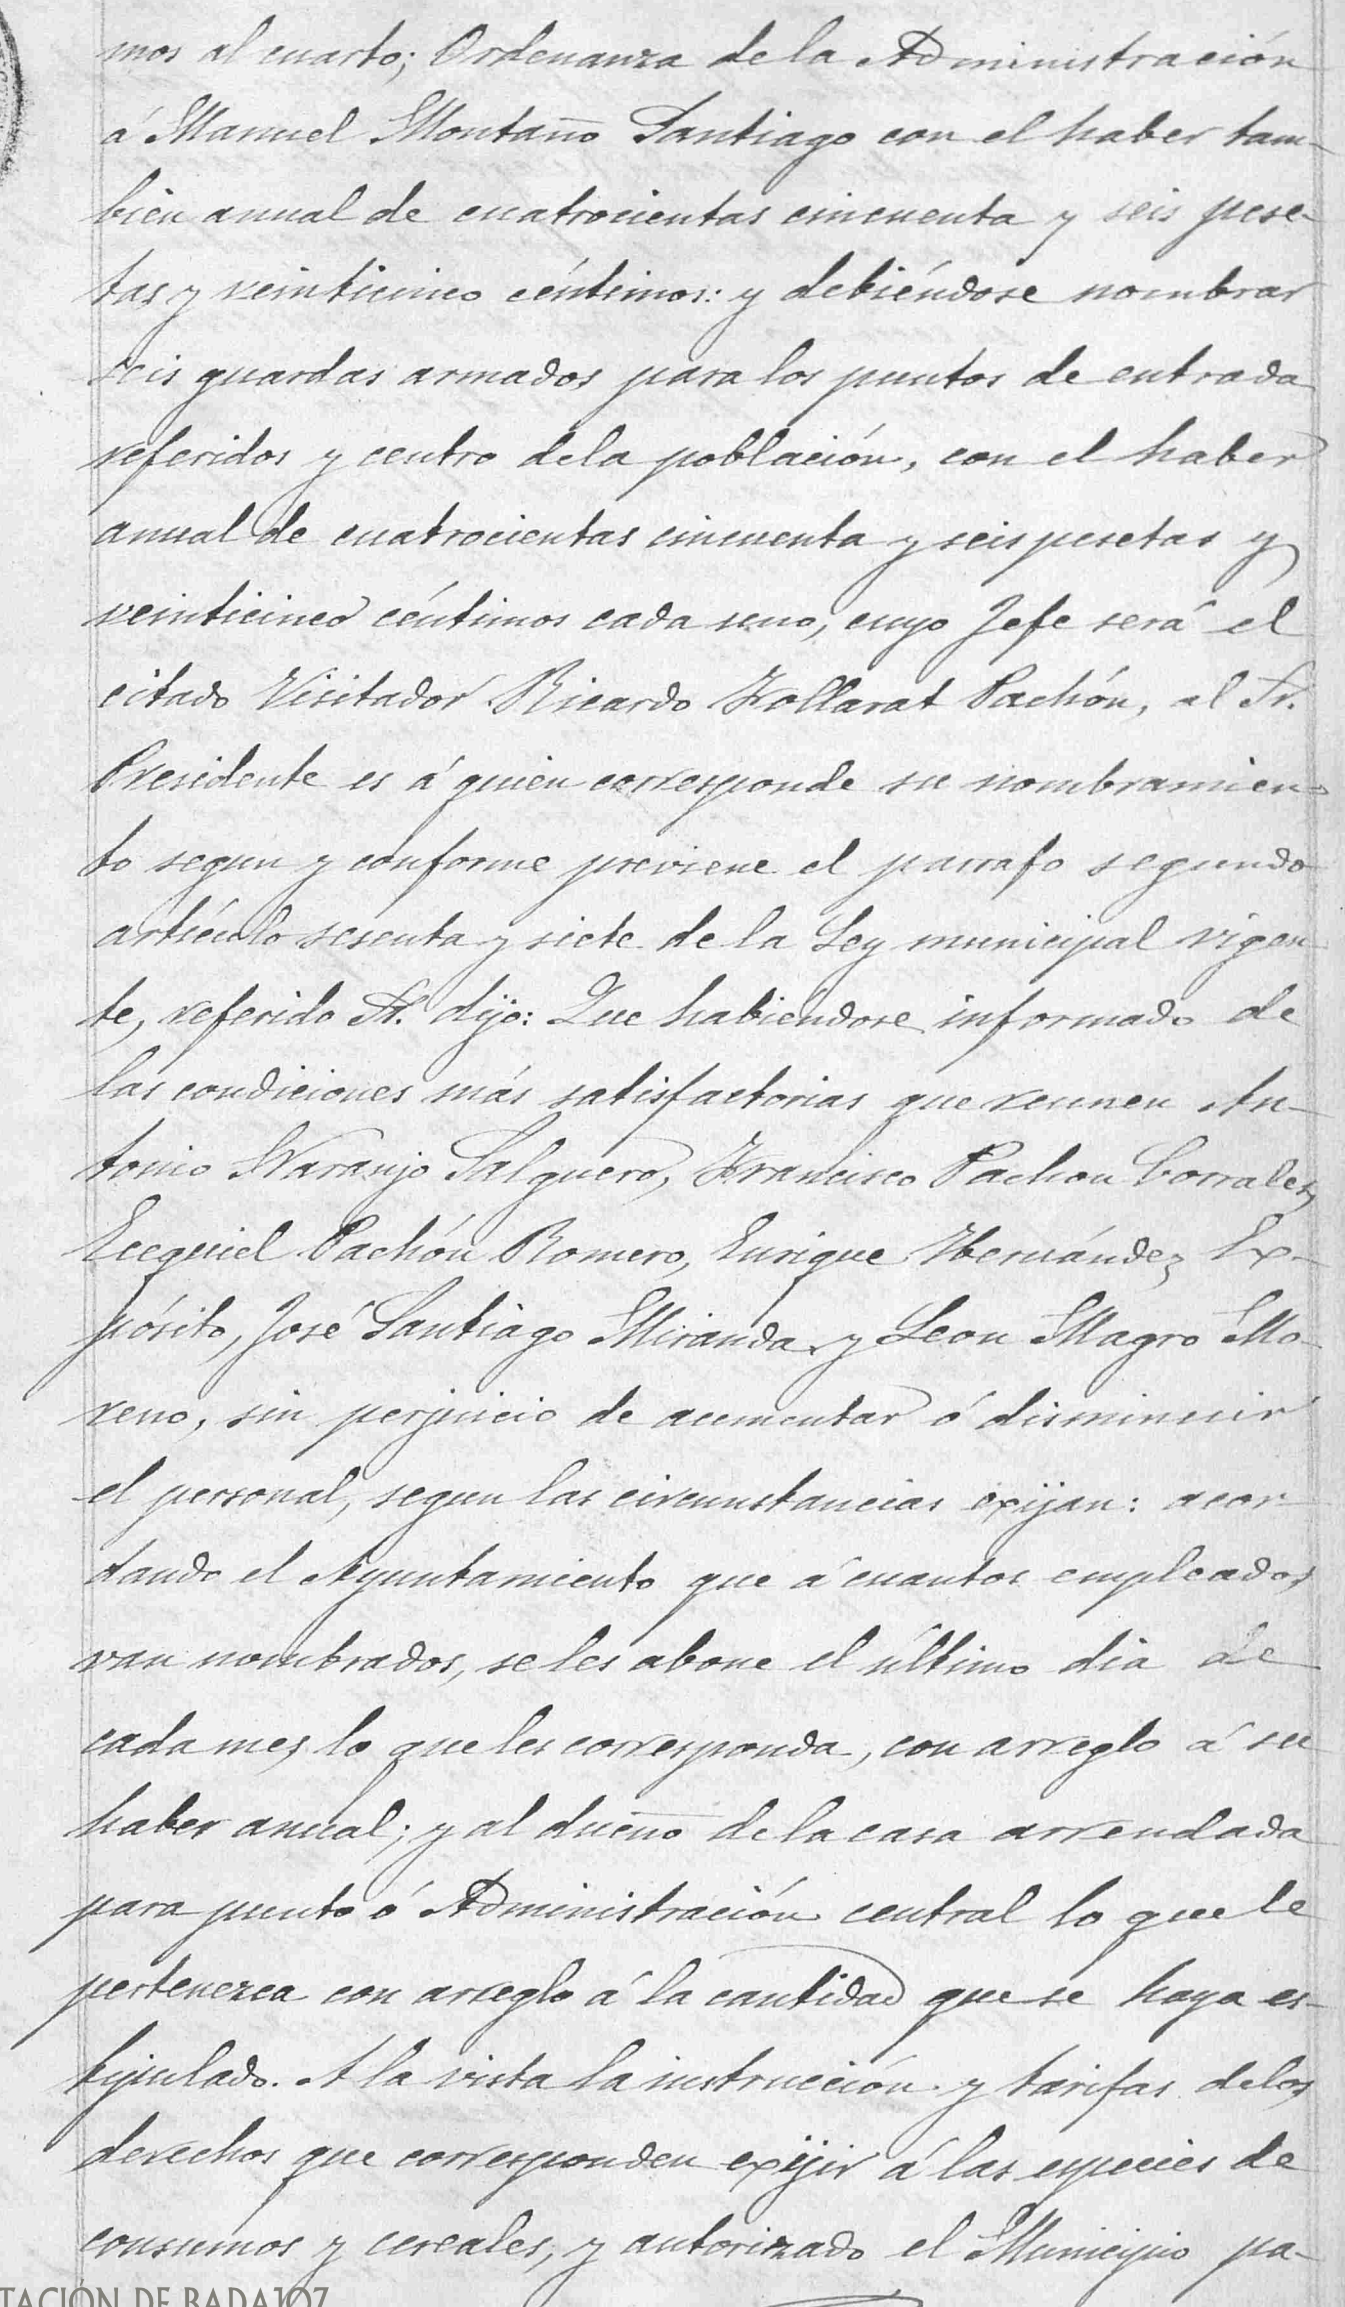 mos al cuarto; Ordenanza de la Administración
á Manuel Montaño Santiago con el haber tam-
bién anual de cuatrocientas cincuenta y seis pese-
tas y veinticinco céntimos: y debiéndose nombrar
seis guardas armados para los puntos de entrada
referidos y centro dela población, con el haber
anual de cuatrocientas cincuenta y seis pesetas y
veinticinco céntimos cada uno, cuyo Jefe será el
citado Visitador Ricardo Follarat Pachón, al Sr.
Presidente es á quien corresponde su nombramien-
to segun y conforme previene el parrafo segundo
artículo sesenta y siete de la Ley municipal vigen
te, referido Sr. dijo: Que habiendose informado de
las condiciones más satisfactorias que reunen An-
tonio Naranjo Salguero, Francisco Pachon Corrales,
Ecequiel Pachón Romero, Enrique Hernández Ex-
pósito, José Santiago Miranda y Leon Magro Mo-
reno, sin perjuicio de aumentar ó disminuir
el personal, segun las circunstancias exijan: acor
dando el Ayuntamiento que á cuantos empleados
van nombrados, se les abone el último dia de
cada mes lo que les corresponda, con arreglo á su
haber anual; y al dueño de la casa arrendada
para punto ó Administración central lo que le
pertenezca con arreglo á la cantidad que se haya es-
tipulado. A la vista la instrucción y tarifas delos
derechos que corresponden exijir á las especies de
consumos y cereales, y autorizado el Municipio pa-
TACIÓN DE BADAJOZ